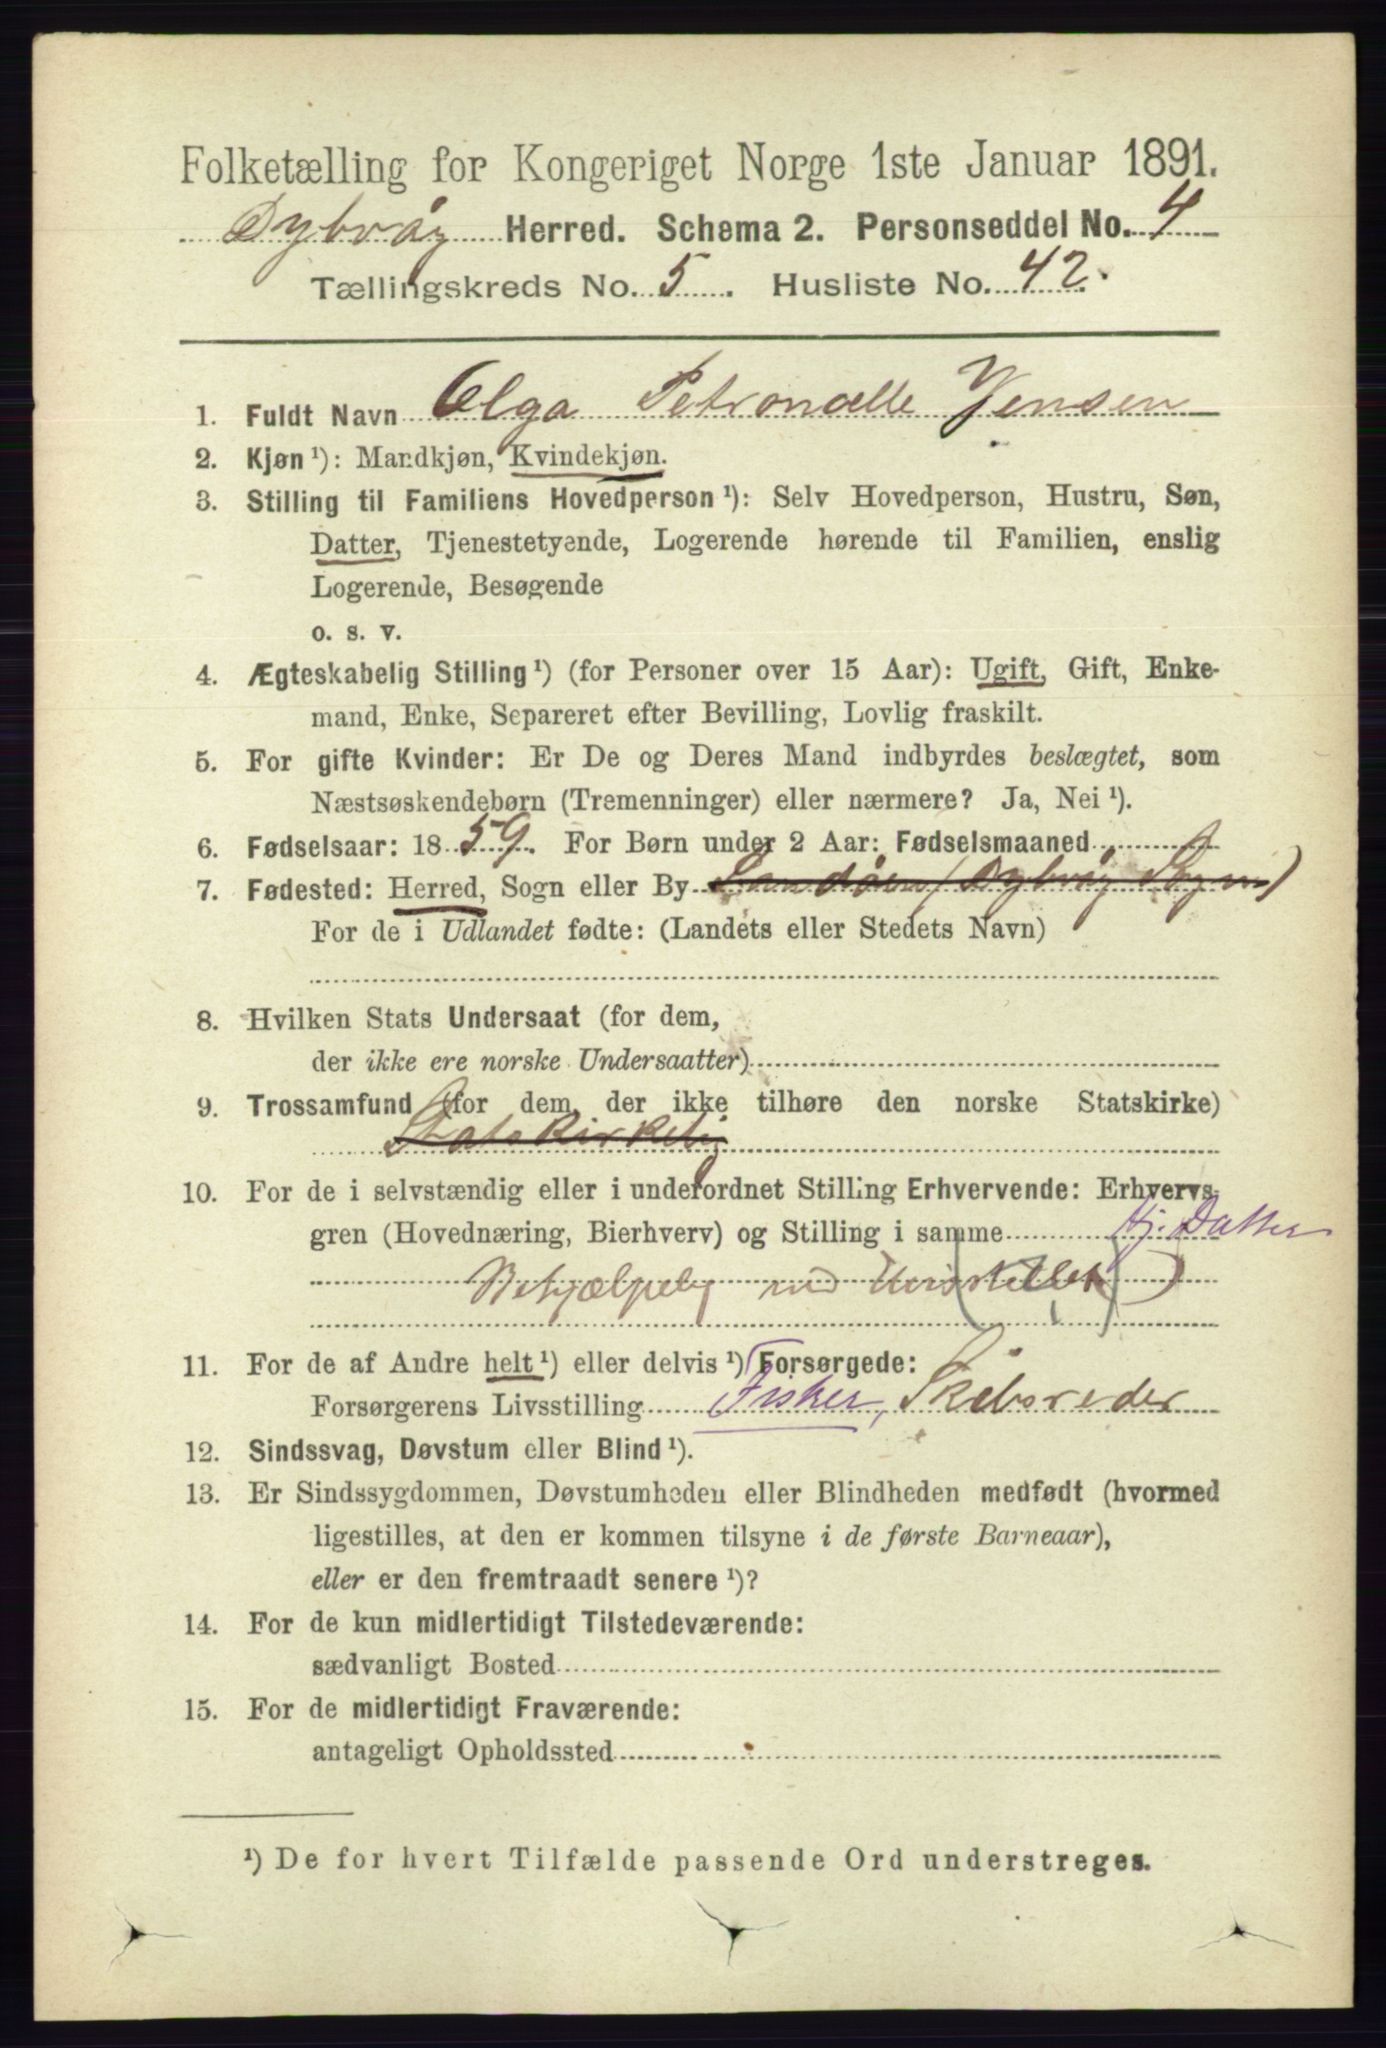 Folketælling for Kongeriget Norge 1ste Januar 1891.
Dybvåg Herred. Schema 2. Personseddel No. 4
Tællingskreds No. 5. Husliste No. 42.
1. Fuldt Navn Olga Petronelle Jensen
2. Kjøn ¹): Mandkjøn, Kvindekjøn.
3. Stilling til Familiens Hovedperson ¹): Selv Hovedperson, Hustru, Søn,
Datter, Tjenestetyende, Logerende hørende til Familien, enslig
Logerende, Besøgende
o. s. v.
4. Ægteskabelig Stilling ¹) (for Personer over 15 Aar): Ugift, Gift, Enke-
mand, Enke, Separeret efter Bevilling, Lovlig fraskilt.
5. For gifte Kvinder: Er De og Deres Mand indbyrdes beslægtet, som
Næstsøskendebørn (Tremenninger) eller nærmere? Ja, Nei ¹).
6. Fødselsaar: 1859. For Børn under 2 Aar: Fødselsmaaned
7. Fødested: Herred, Sogn eller By Sandøen (Dybvåg Sogn)
For de i Udlandet fødte: (Landets eller Stedets Navn)
8. Hvilken Stats Undersaat (for dem,
der ikke ere norske Undersaatter)
9. Trossamfund (for dem, der ikke tilhøre den norske Statskirke)
Statskirkelig
10. For de i selvstændig eller i underordnet Stilling Erhvervende: Erhvervs-
gren (Hovednæring, Bierhverv) og Stilling i samme Hj. Datter
Behjælpelig med
11. For de af Andre helt ¹) eller delvis ¹) Forsørgede:
Forsørgerens Livsstilling Fisker, Skibsreder
12. Sindssvag, Døvstum eller Blind ¹).
13. Er Sindssygdommen, Døvstumheden eller Blindheden medfødt (hvormed
ligestilles, at den er kommen tilsyne i de første Barneaar),
eller er den fremtraadt senere ¹)?
14. For de kun midlertidigt Tilstedeværende:
sædvanligt Bosted
15. For de midlertidigt Fraværende:
antageligt Opholdssted
¹) De for hvert Tilfælde passende Ord understreges.